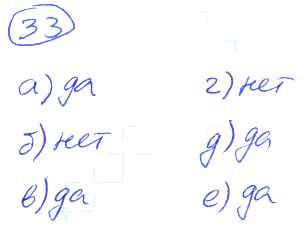 33
а) да
б) нет
в) да
г) нет
д) да
е) да